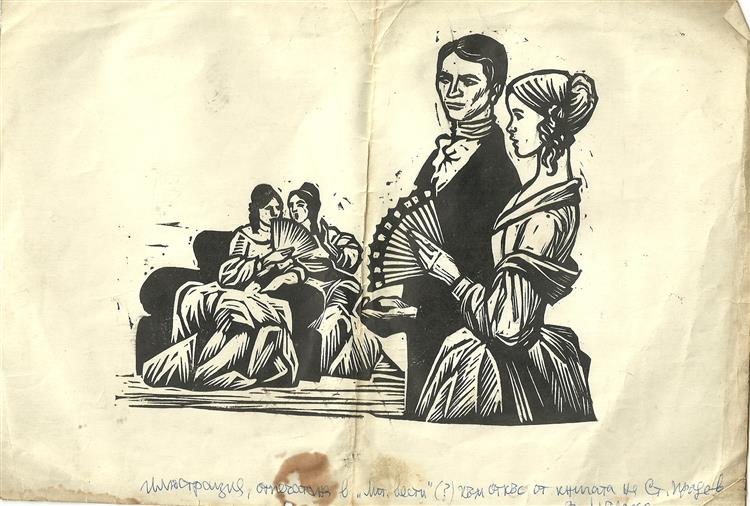 Илюстрация, отпечатана в „Лит. вести“ (?) към откъс от книгата на Ст. Продев